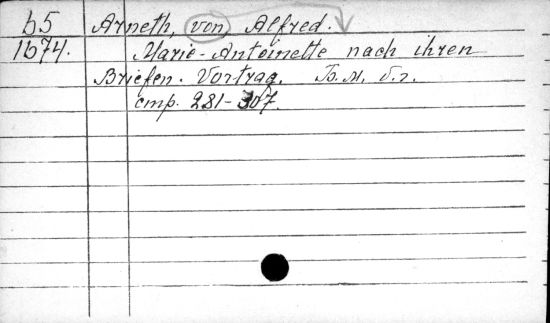 b5 Arneth, von, Alfred.
1674. Marie-Antoinette nach ihren
Briefen. Vortrag. Б.м. б.г.
стр. 281-307.